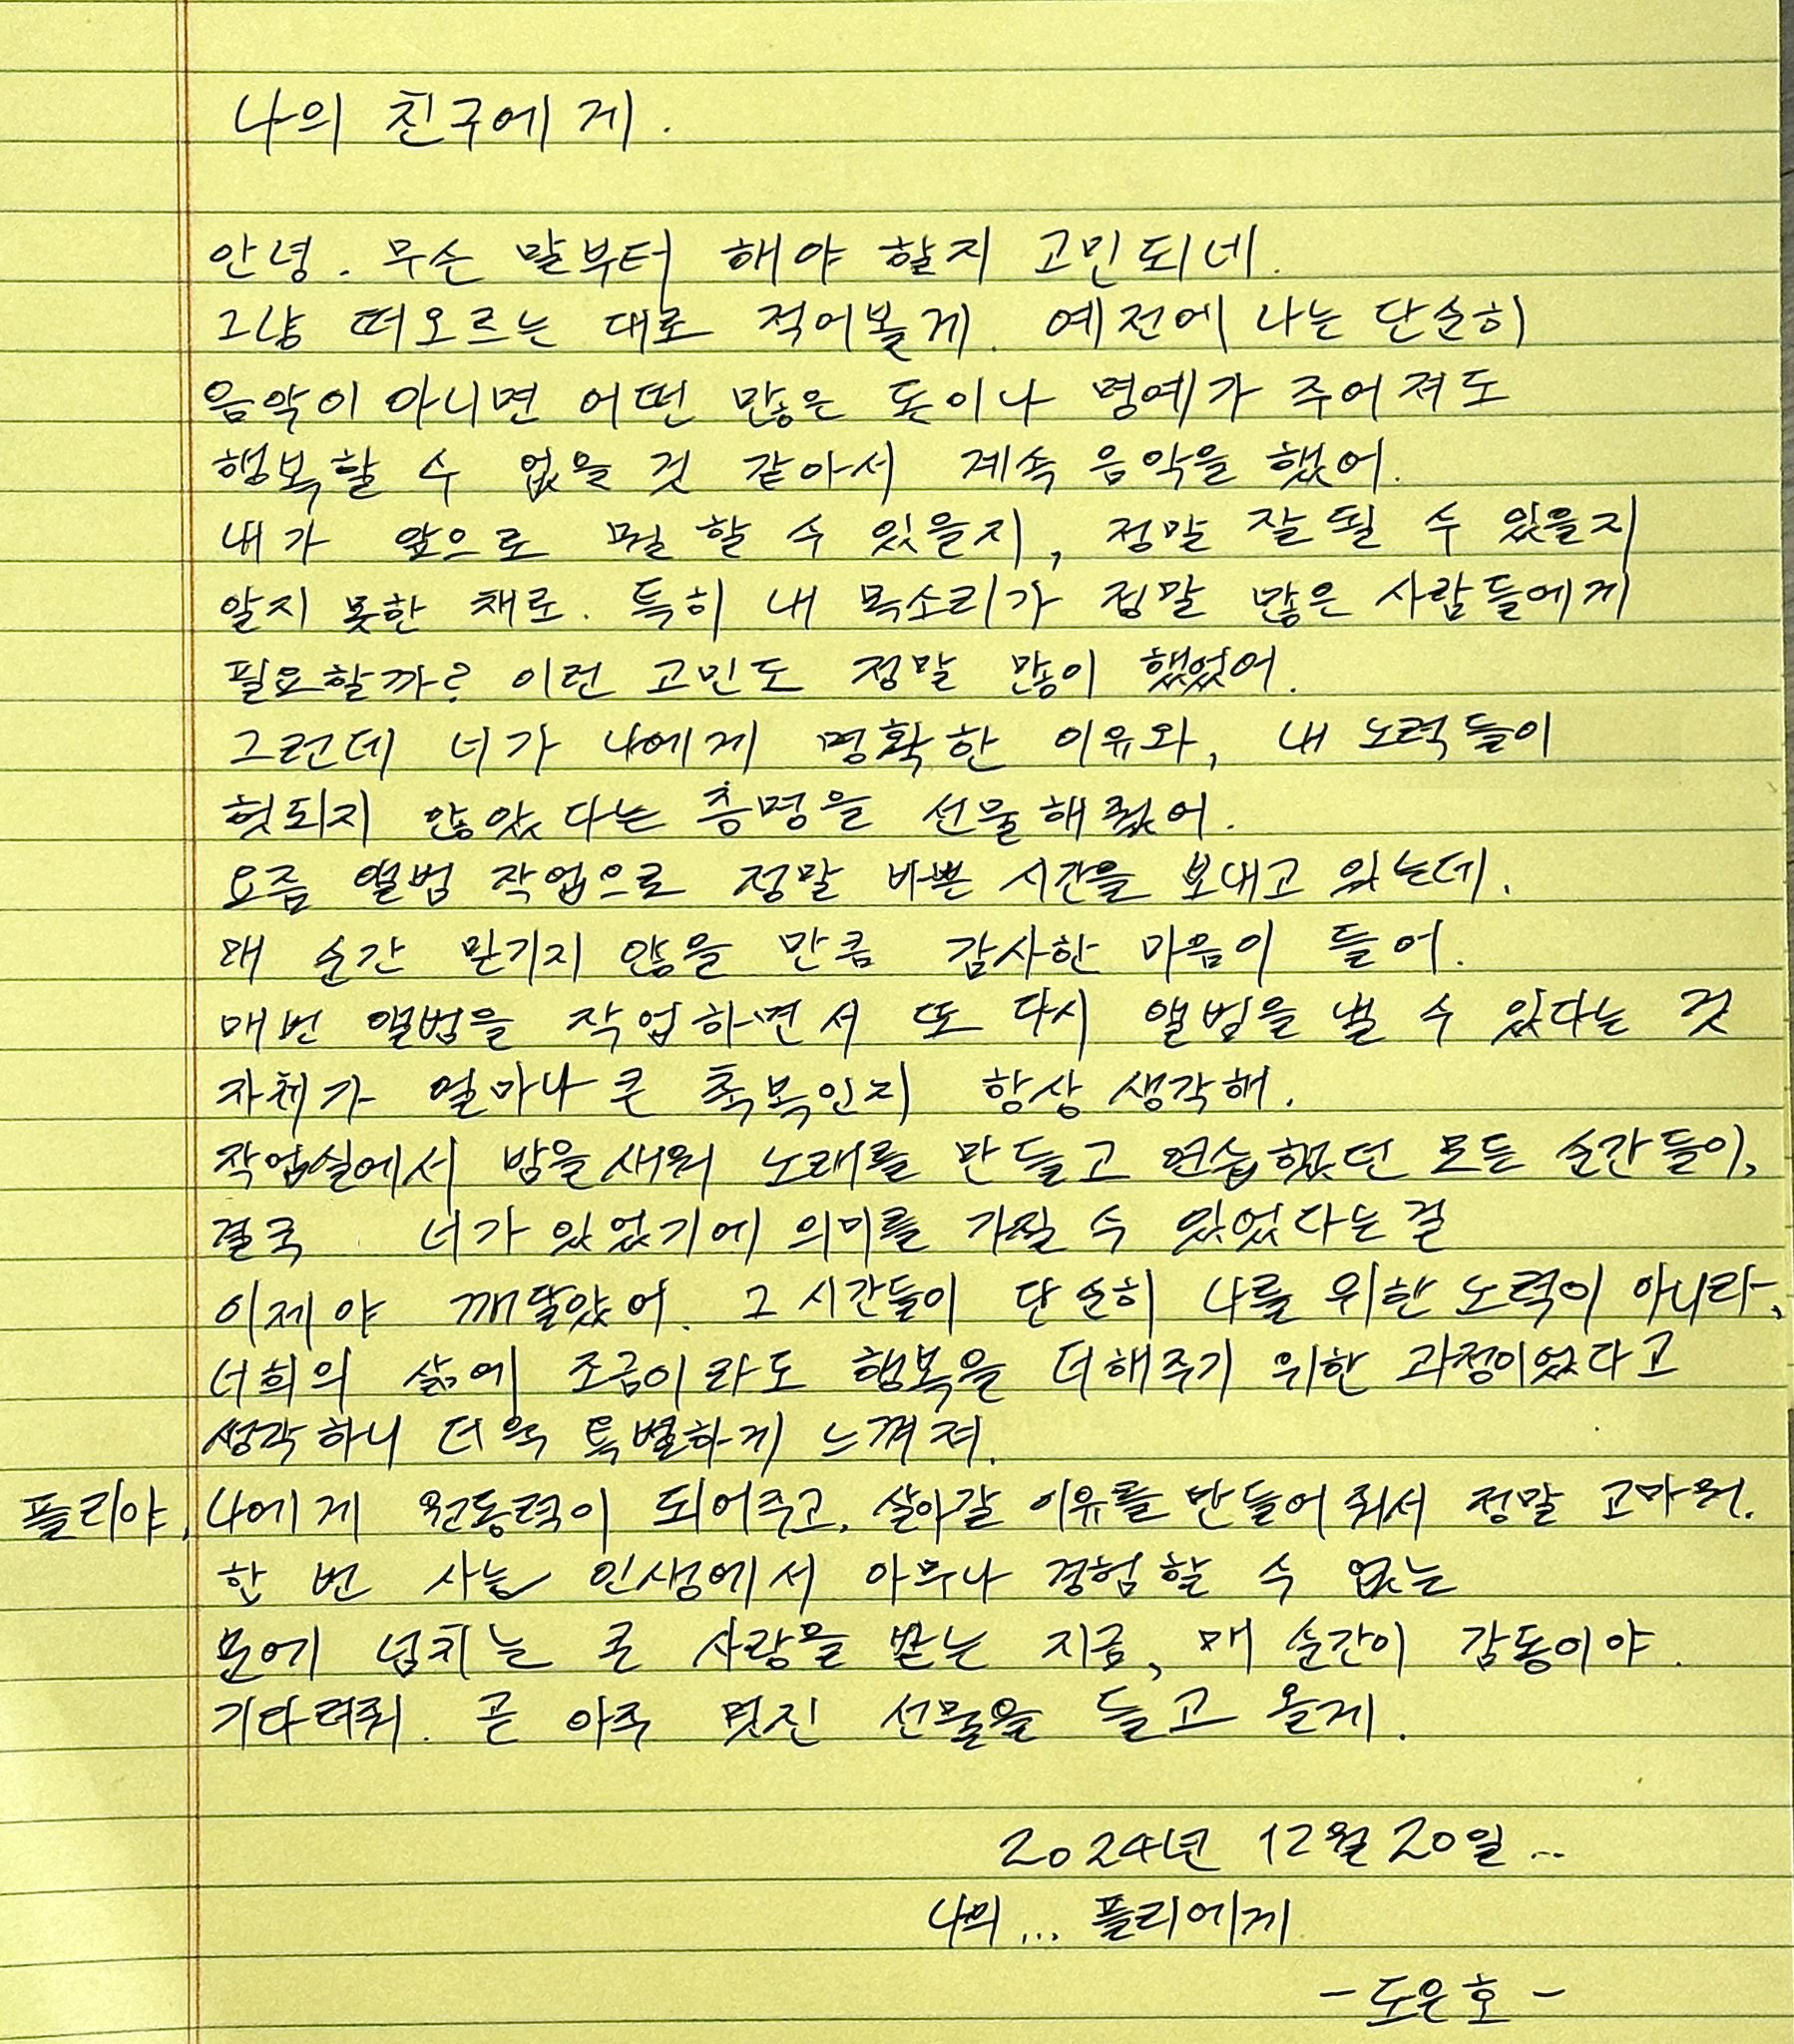 나의 친구에게.
안녕. 무슨 말부터 해야 할지 고민되네.
그냥 떠오르는 대로 적어볼게. 예전에 나는 단순히
음악이 아니면 어떤 많은 돈이나 명예가 주어져도
행복할 수 없을 것 같아서 계속 음악을 했어.
내가 앞으로 뭘 할 수 있을지, 정말 잘 될 수 있을지
알지 못한 채로. 특히 내 목소리가 정말 많은 사람들에게
필요할까? 이런 고민도 정말 많이 했었어.
그런데 너가 나에게 명확한 이유와, 내 노력들이
헛되지 않았다는 증명을 선물해줬어.
요즘 앨범 작업으로 정말 바쁜 시간을 보내고 있는데,
매 순간 믿기지 않을 만큼 감사한 마음이 들어.
매번 앨범을 작업하면서 또 다시 앨범을 낼 수 있다는 것
자체가 얼마나 큰 축복인지 항상 생각해.
작업실에서 밤을 새워 노래를 만들고 연습했던 모든 순간들이,
결국 너가 있었기에 의미를 가질 수 있었다는 걸
이제야 깨달았어. 그 시간들이 단순히 나를 위한 노력이 아니라,
너희의 삶에 조금이라도 행복을 더해주기 위한 과정이었다고
생각하니 더욱 특별하게 느껴져.
플리야, 나에게 원동력이 되어주고, 살아갈 이유를 만들어줘서 정말 고마워.
한 번 사는 인생에서 아무나 경험할 수 없는
분에 넘치는 큰 사랑을 받는 지금, 매 순간이 감동이야.
기다려줘. 곧 아주 멋진 선물을 들고 올게.
2024년 12월 20일..
나의... 플리에게
-도은호-